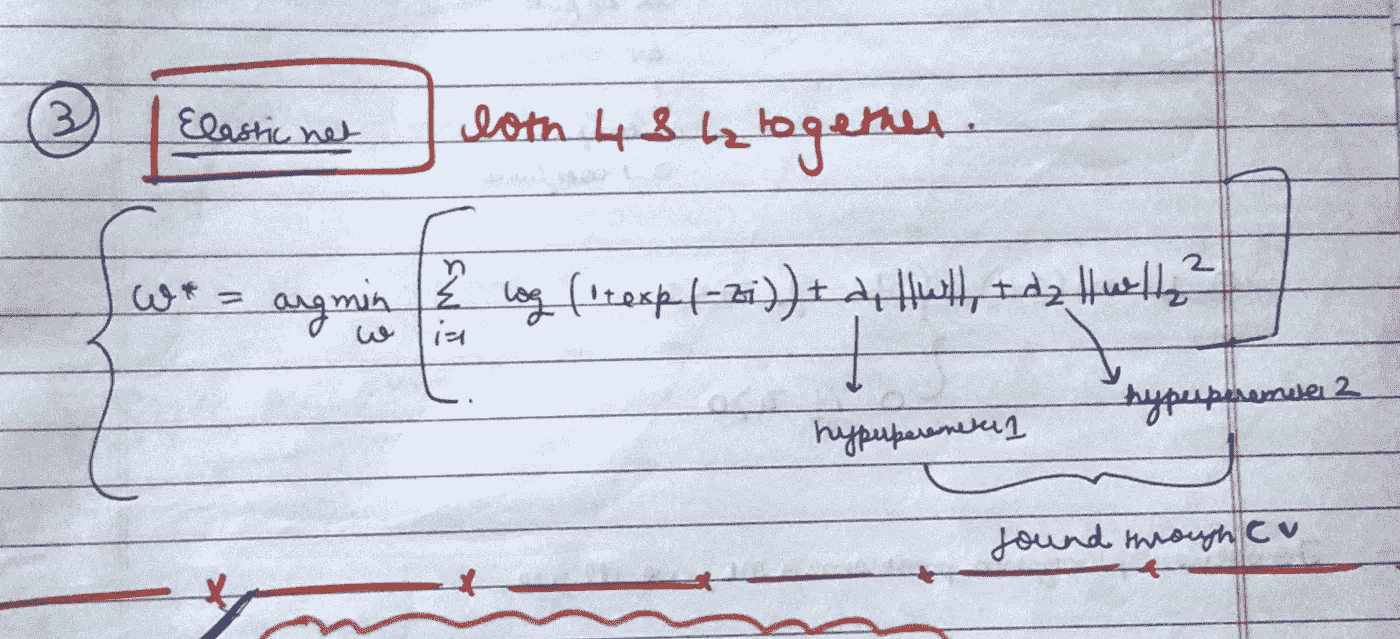 3 Elastic net both L1 & L2 together.
w* = argmin w [ n Σ i=1 log (1+exp(-zi)) + λ1 ||w||1 + λ2 ||w||2² ]
hyperparameter 2
hyperparameter 1
found through CV